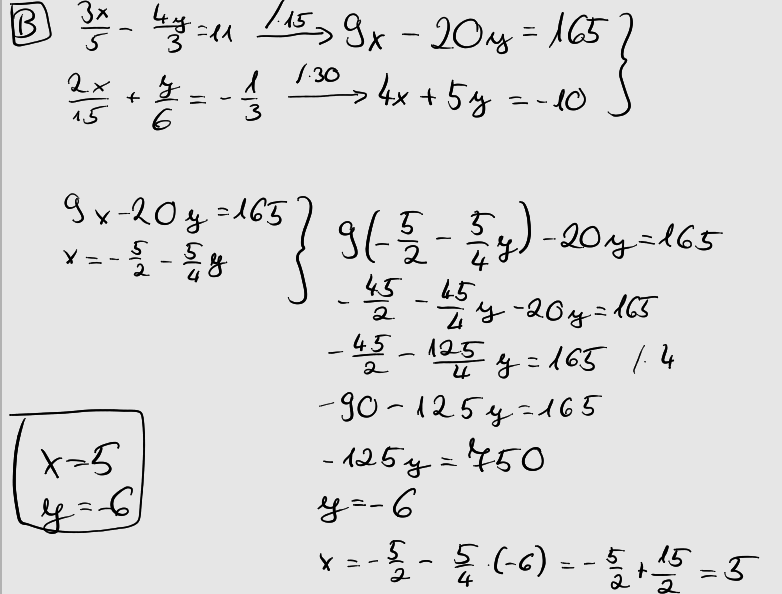 B 3x/5 - 4y/3 = 11 /·15 → 9x - 20y = 165 }
2x/15 + y/6 = - 1/3 /·30 → 4x + 5y = -10
9x - 20y = 165 }
x = - 5/2 - 5/4 y
9(- 5/2 - 5/4 y) - 20y = 165
- 45/2 - 45/4 y - 20y = 165
- 45/2 - 125/4 y = 165 /· 4
-90 - 125y = 165
- 125y = 750
y = - 6
x = - 5/2 - 5/4 · (-6) = - 5/2 + 15/2 = 5
x = 5
y = -6